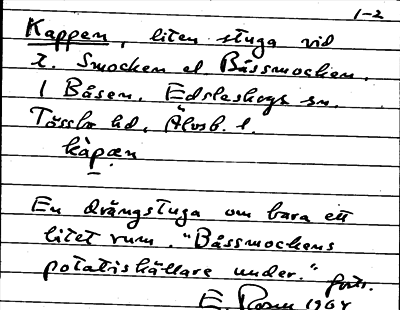 1-2
Kappen, liten stuga vid
t. Smocken el Båssmocken.
I Båsen, Edsleskogs sn.
Tössbo hd, Älvsb. l.
kàpæn
En drängstuga om bara ett
litet rum. "Båssmockens
potatiskällare under." forts.
E. 1904